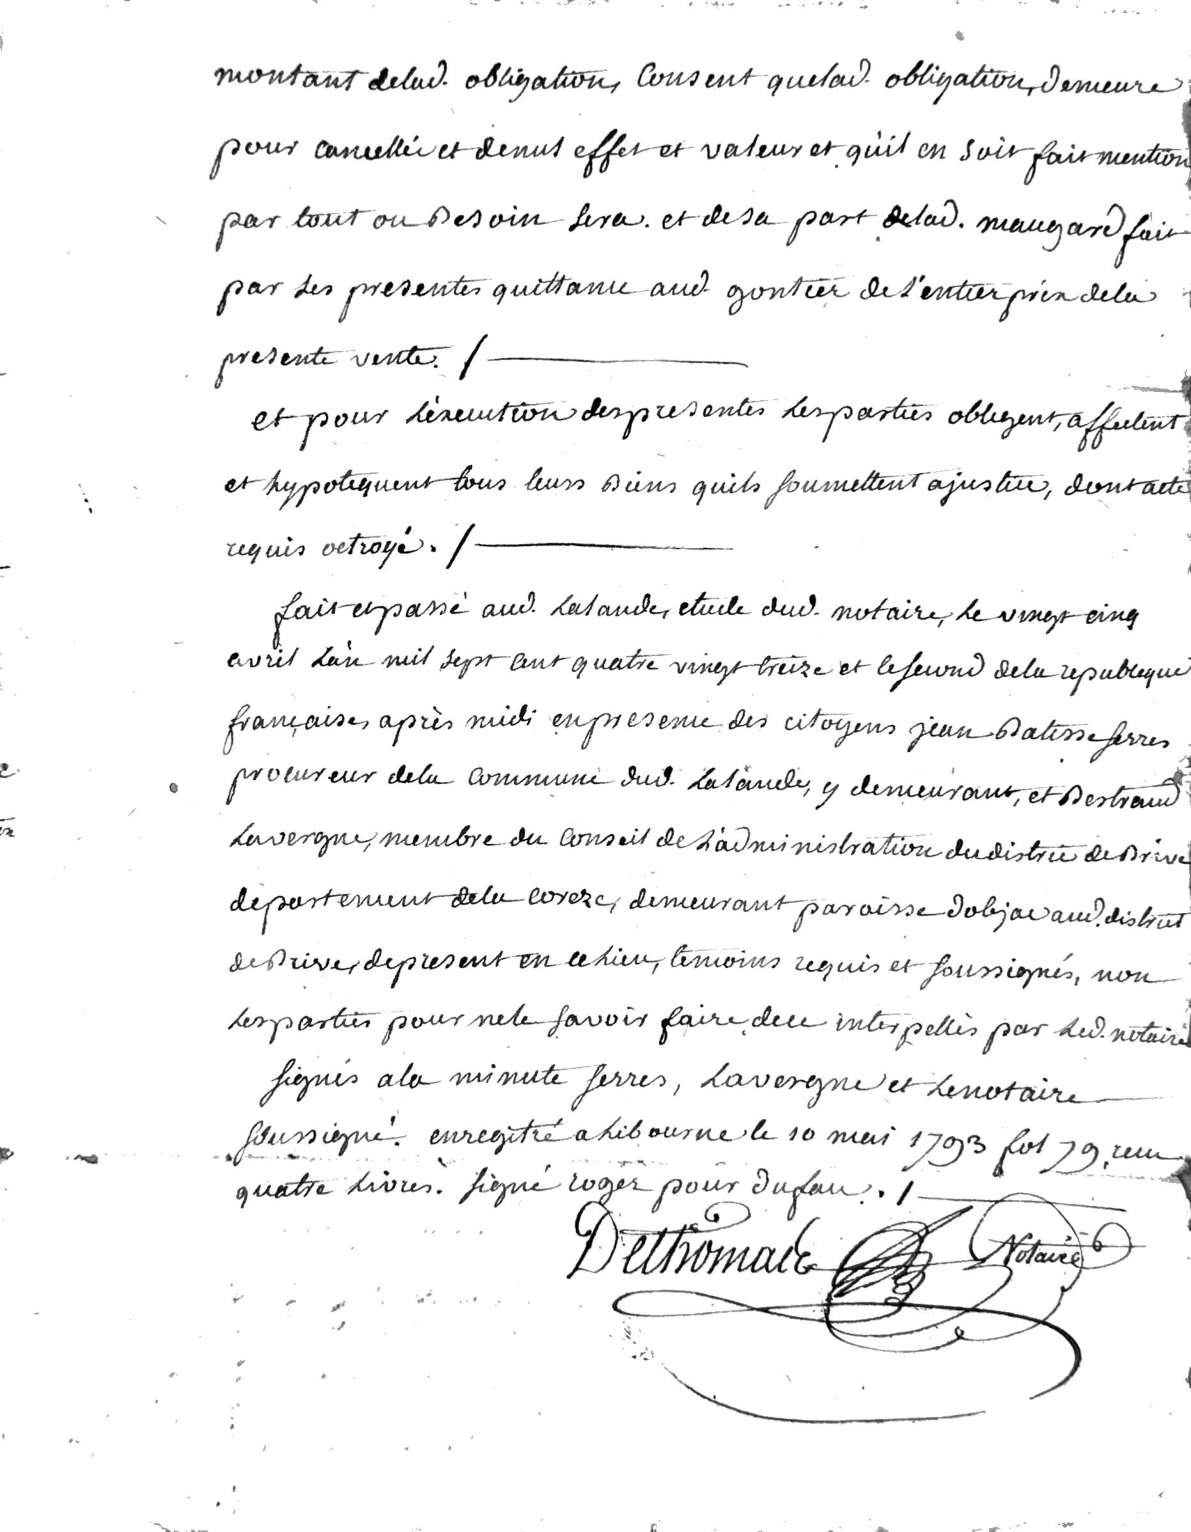 montant delad. obligation, Consent quelad. obligation, demeure
pour cancellée et denul effet et valeur et qu'il en soit fait mention
par tout ou Besoin sera. et desa part delad. maugard fait
par les presentes quittance aud. gontier de l'entier prix dela
presente vente. /
et pour l'éxecution despresentes lesparties obligent, affectent
et hypotequent tous leurs Biens quils soumettent ajustice, dont acte
requis octroyé. /
fait et passé aud. Lalande, etude dud. notaire, le vingt cinq
avril l'an mil sept cent quatre vingt treize et lesecond dela republique
française, après midi en presence des citoyens jean Batisse serres
procureur dela Commune dud. Lalande, y demeurant, et Bertrand
Lavergne, membre du Conseil de l'administration dudistrict de Brive
departement dela Coreze, demeurant paroisse dobjac aud. district
de Brive, depresent en ce lieu, temoins requis et soussignés, non
lesparties pour nele savoir faire dece interpellés par led. notaire
signés ala minute serres, Lavergne et lenotaire
soussigné. enregitré a Libourne le 10 mai 1793 fol 79, reçu
quatre livres. signé roger pour dufau. /
Delthomade Notaire